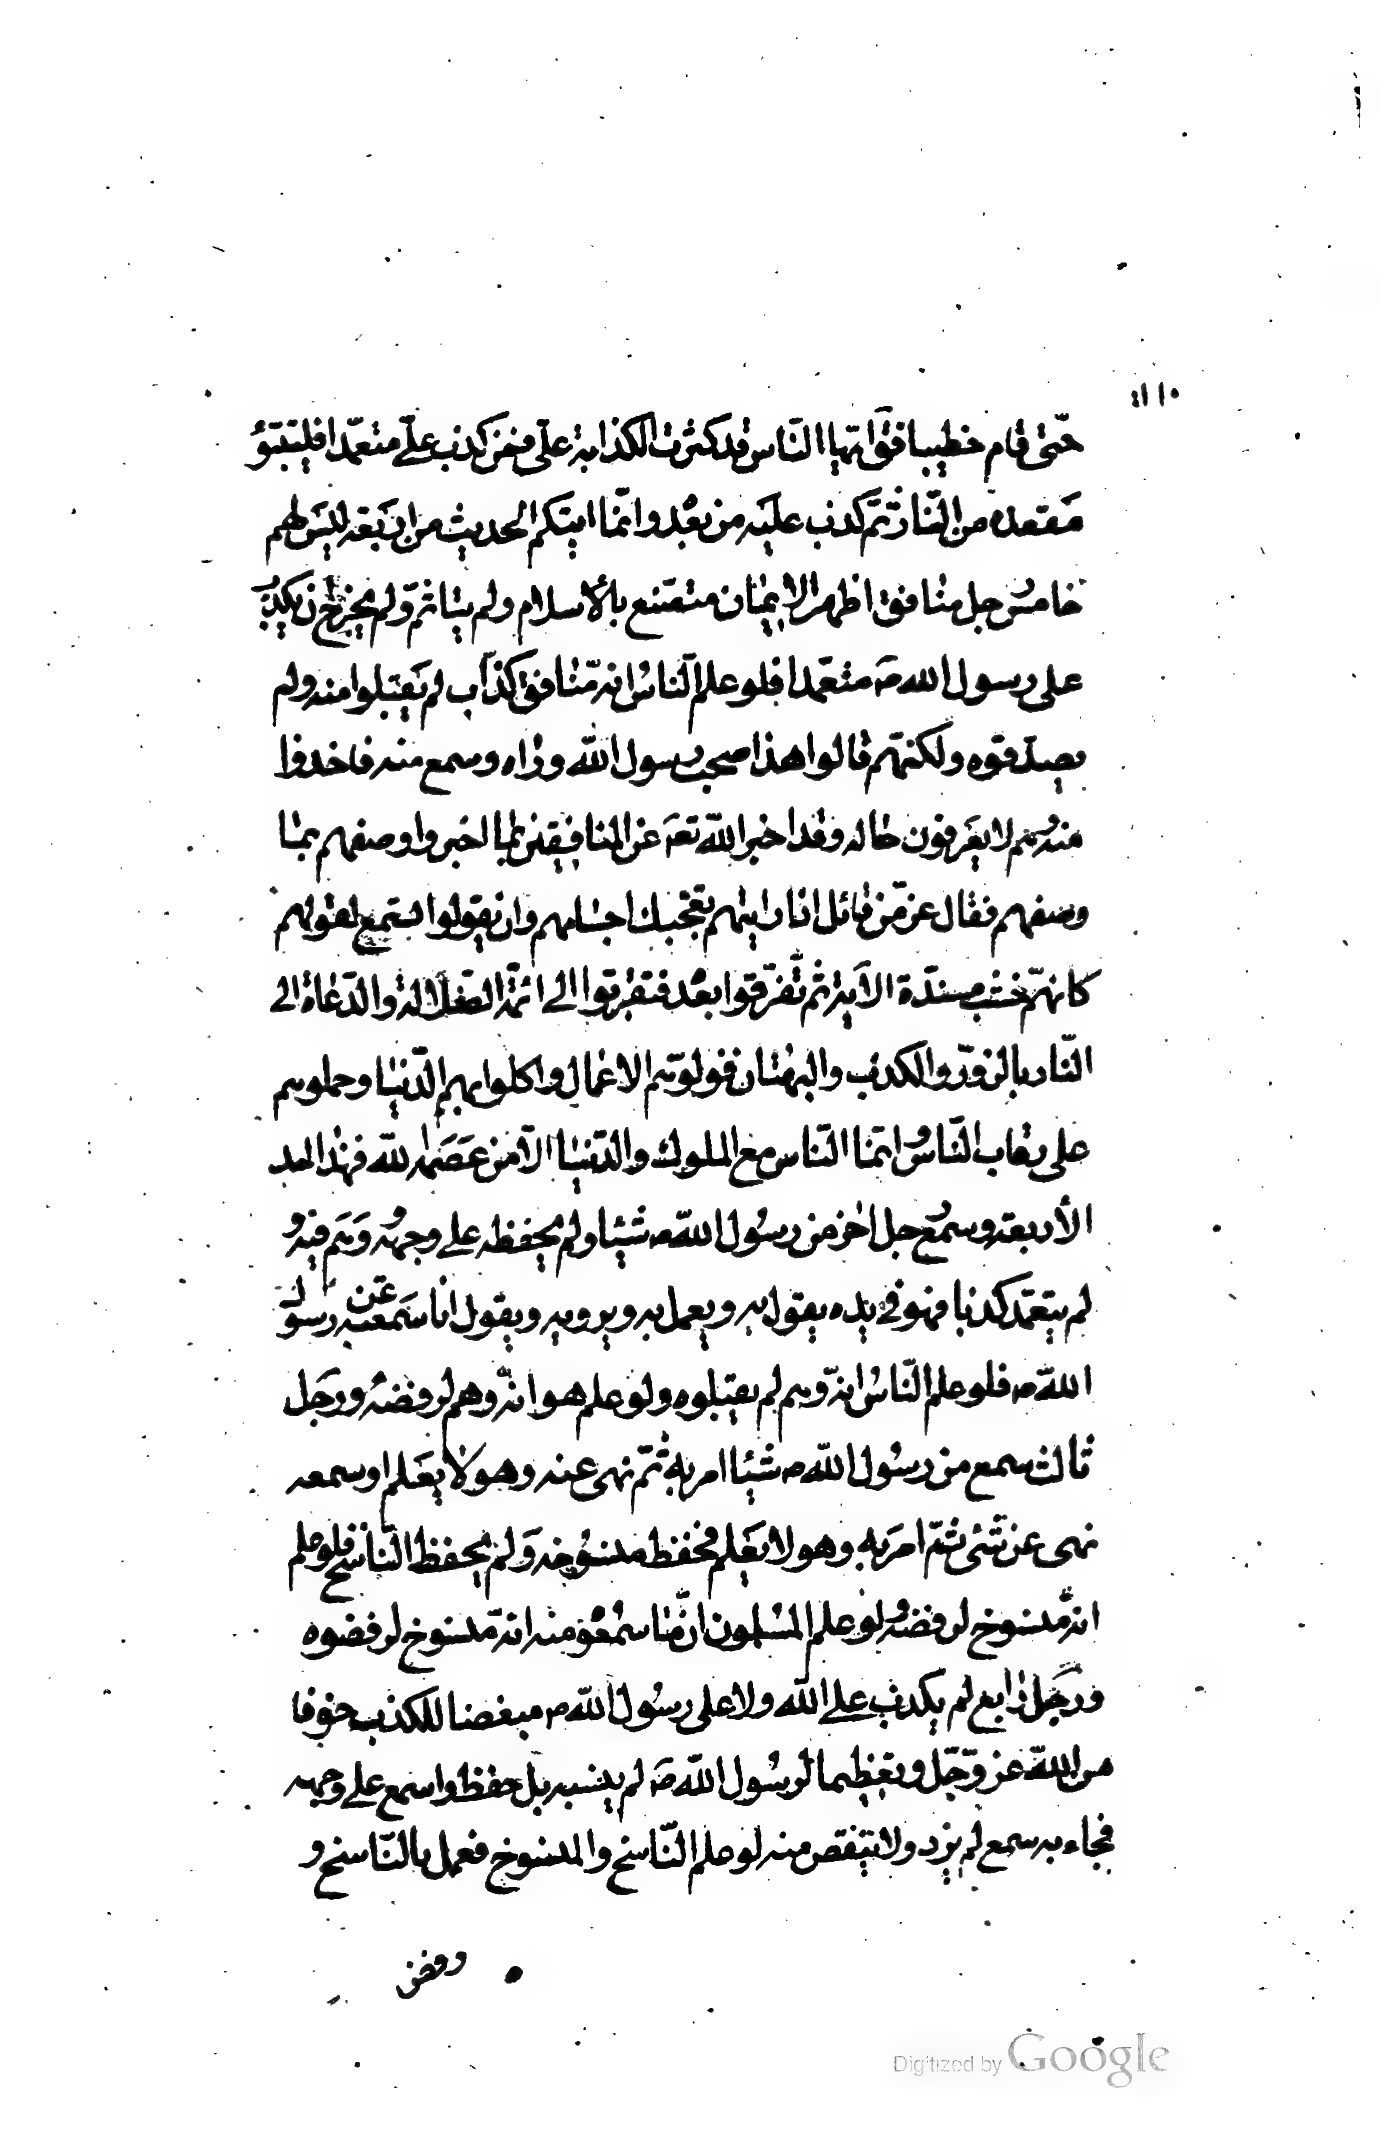 حتّى قام خطيبا فقال ايّها النّاس قد كثرت الكذابة علّى فمن كذب علّى متعمّدا فليتبّوء
مقعده من النّار ثمّ كذب عليه من بعد وانّما اتيكم الحديث من اربعه ليس لهم
خامس رجل منافق اظهر الايمان متصنع بالأسلام ولم يتاثم ولم يخرج ان يكذب
على رسول الله ص متعمّدا فلو علم النّاس انه منافق كذّاب لم يقبلوا منه ولم
يصدقوه ولكنهّم قالوا هذا صحب رسول الله وراه وسمع منه فاخذوا
منه وهم لا يعرفون حاله وقد اخبر الله تعه عن المنافيقين بما اخبر واوصفهم بما
وصفهم فقال عزّ من قائل اذا رايتهم تعجبك اجسامهم وان يقولوا تسمع لقولهم
كانهّم خشب مسندّة الاية ثم تّفرّقوا بعد فتقربوا الى ائمّة الضّلالة والدّعاة الى
النّار بالزّور والكذب والبهتان فولوّهم الاعمال واكلوا بهم الدّنيا وحملوهم
على رقاب النّاس وانمّا النّاس مع الملوك والدّنيا الّا من عصمه الله فهذا احد
الأربعة وسمع رجل اخر من رسول الله ص شيئا ولم يحفظه على وجهه ووهم فيه و
لم يتعمّد كذبا فهو فى يده يقول به ويعمل به ويرويه ويقول انا سمعته عن رسول
الله ص فلو علم النّاس انه وهم لم يقبلوه ولو علم هو انه وهم لرفضه ورجل
ثالث سمع من رسول الله ص شيئا امر به ثمّ نهى عنه وهو لا يعلم او سمعه
نهى عن شئ ثمّ امر به وهو لا يعلم فحفظ منسوخه ولم يحفظ النّاسخ فلو علم
انه منسوخ لرفضه ولو علم المسلمون انّ ما سمعوه منه انه منسوخ لرفضوه
ورجل رابع لم يكذب على الله ولا على رسول الله ص مبغضا للكذب خوفا
من الله عزّ وجّل وتعظيما لرسول الله ص لم ينسه بل حفظ وا سمع على وجهه
فجاء به سمع لم يزد ولا ينقص منه لو علم النّاسخ والمنسوخ فعمل بالنّاسخ و
ورفض
Digitized by Google